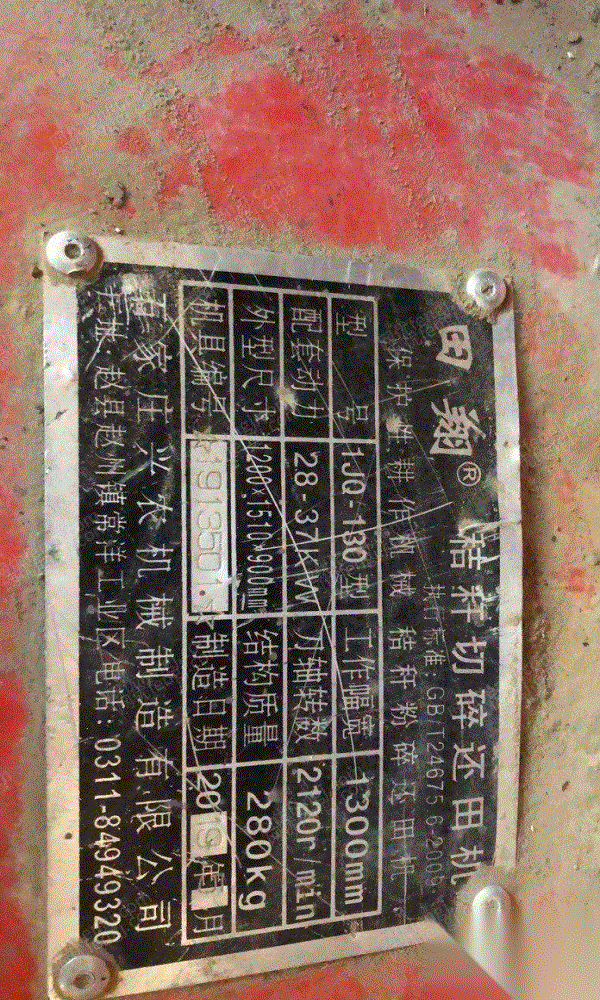 田翔® 秸秆切碎还田机
执行标准:GB/T24675.6-2009
保护性耕作机械 秸秆粉碎还田机
型号 1JQ-130型 工作幅宽 1300mm
配套动力 28-37KW 刀轴转数 2120r/min
外型尺寸 1200×1510×900mm 结构质量 280kg
机具编号 制造日期 2019年 月
石家庄兴农机械制造有限公司
赵县赵州镇常洋工业区 电话:0311-84949320